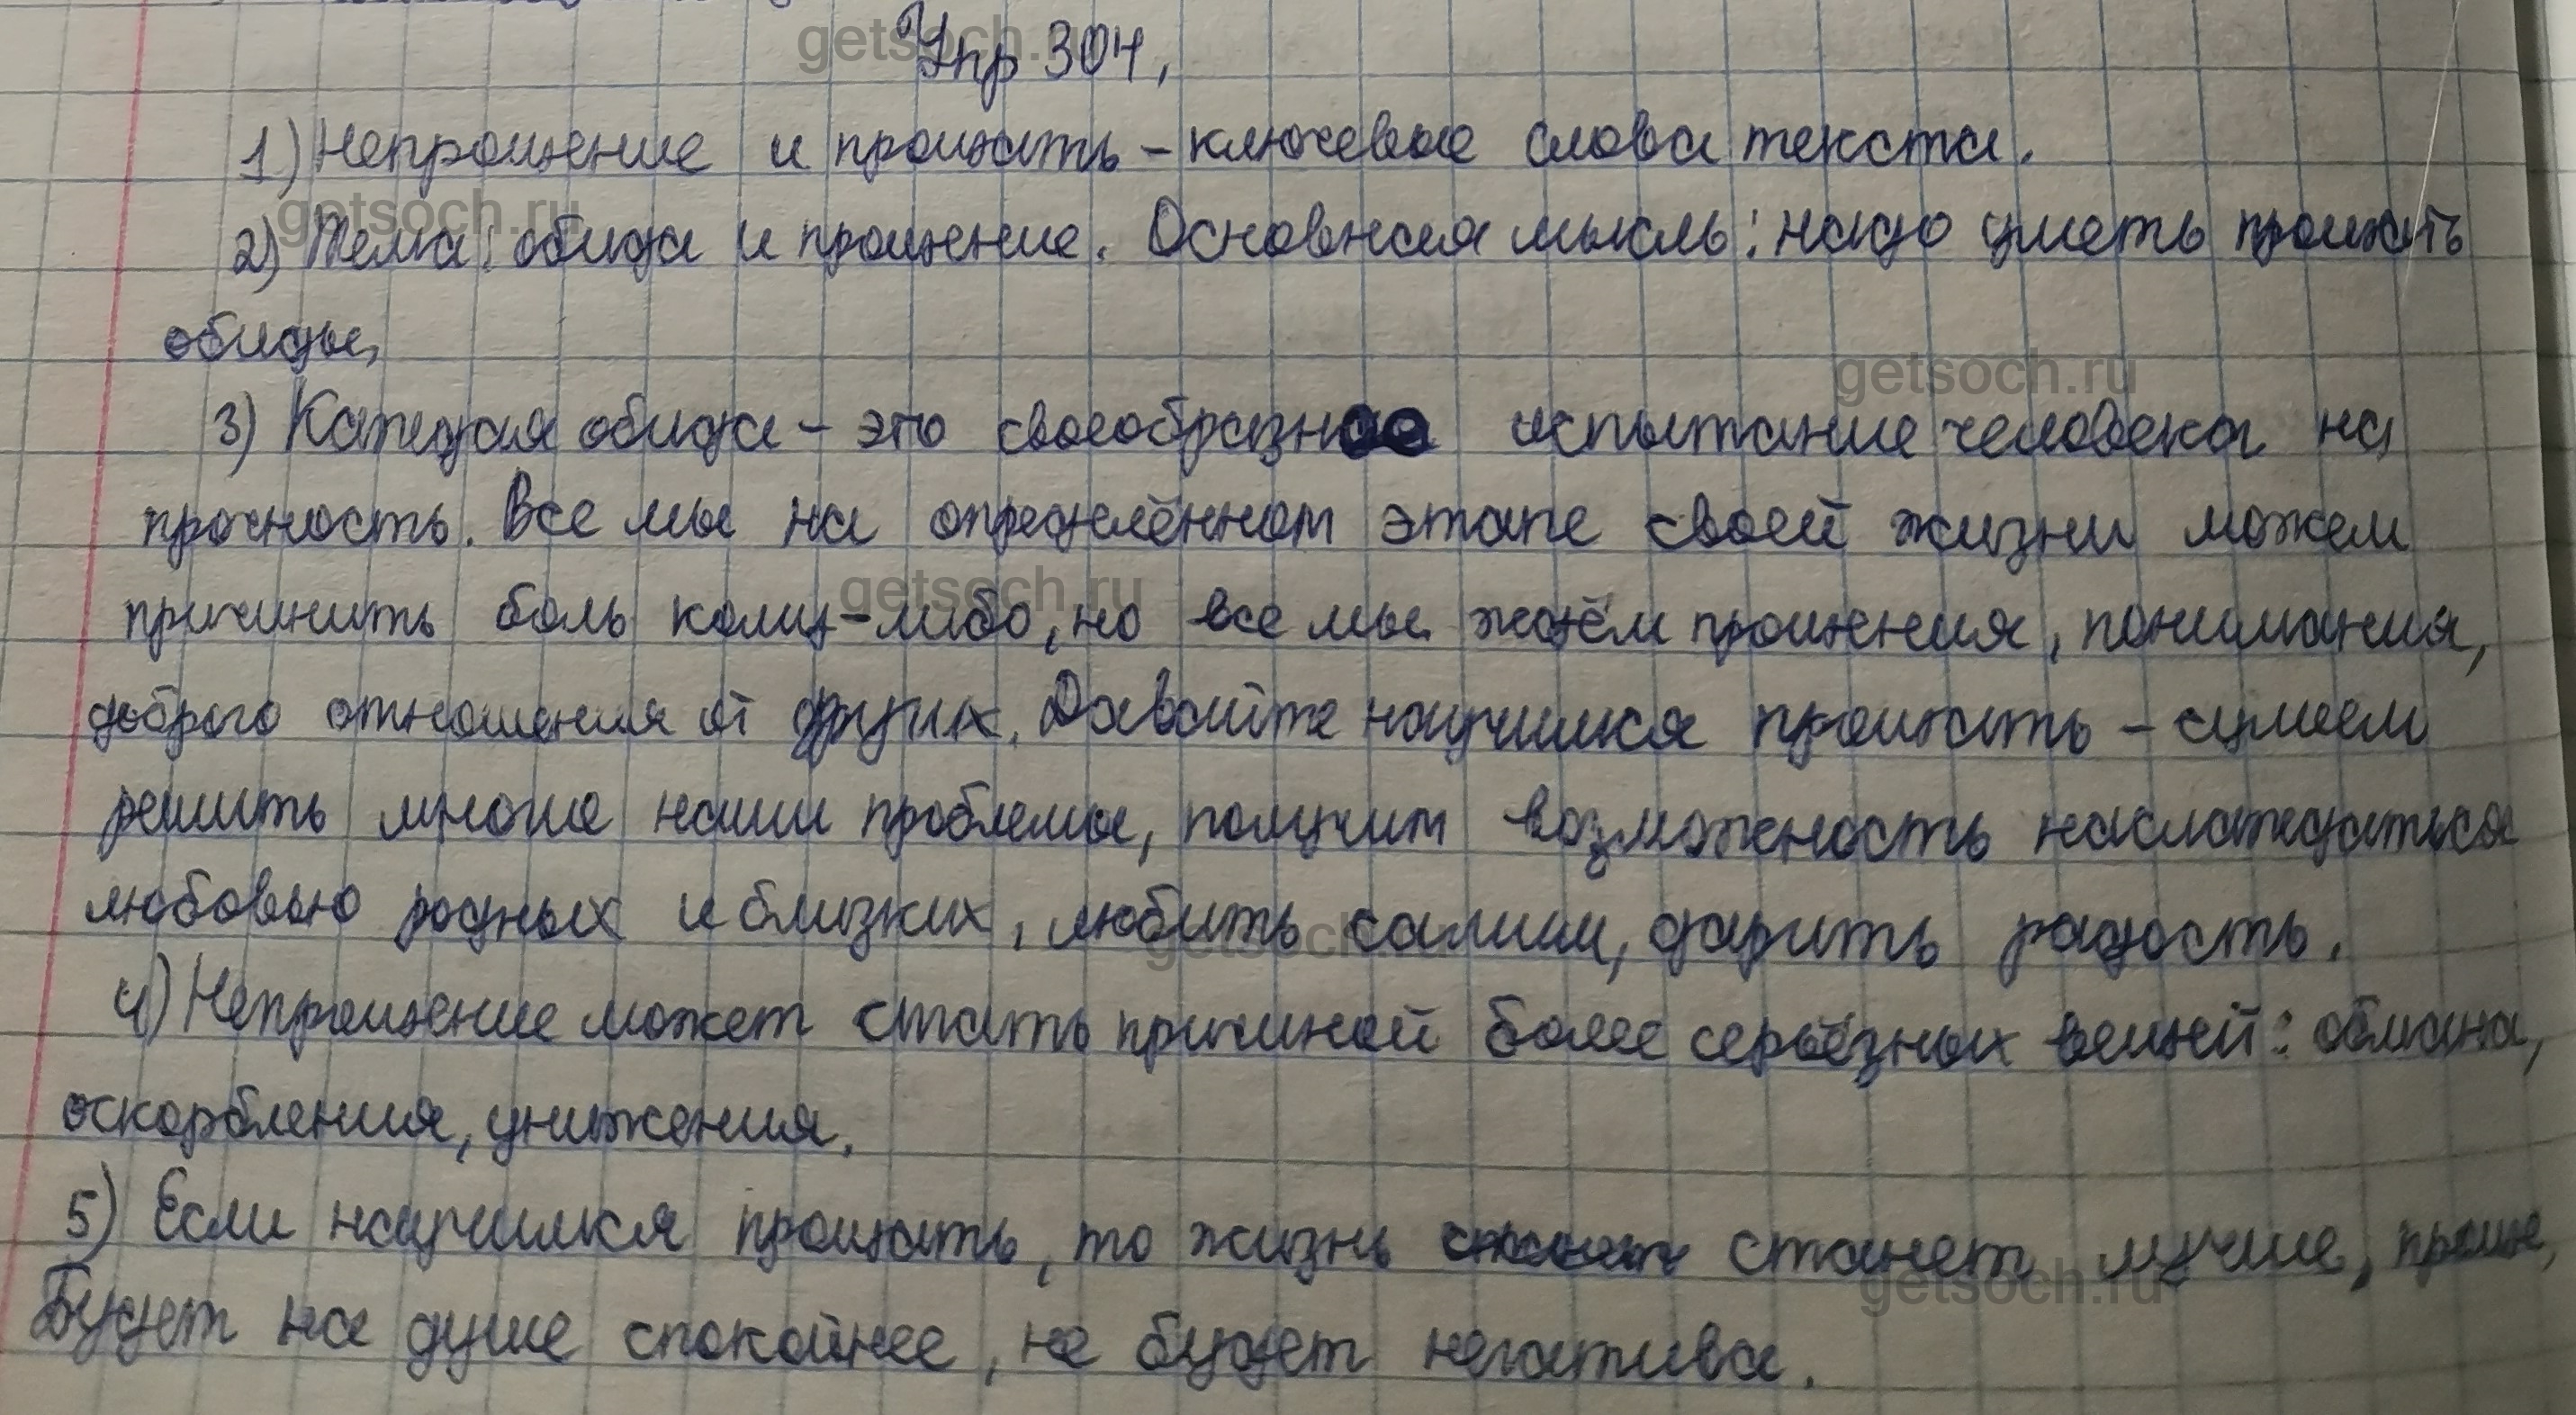 Упр 304,
1) Непрощение и прощать – ключевые слова текста.
2) Тема: обида и прощение. Основная мысль: надо уметь прощать
обиды,
3) Каждая обида – это своеобразное испытание человека на
прочность. Все мы на определённом этапе своей жизни можем
причинить боль кому-либо, но все мы ждём прощения, понимания,
доброго отношения от других. Давайте научимся прощать – сумеем
решить многие наши проблемы, получим возможность наслаждаться
любовью родных и близких, любить самим, дарить радость.
4) Непрощение может стать причиной более серьёзных вещей: обмана,
оскорбления, унижения.
5) Если научимся прощать, то жизнь станет лучше, проще,
Будет на душе спокойнее, не будет негатива.
getsoch.ru
getsoch.ru
getsoch.ru
getsoch.ru
getsoch.ru
getsoch.ru